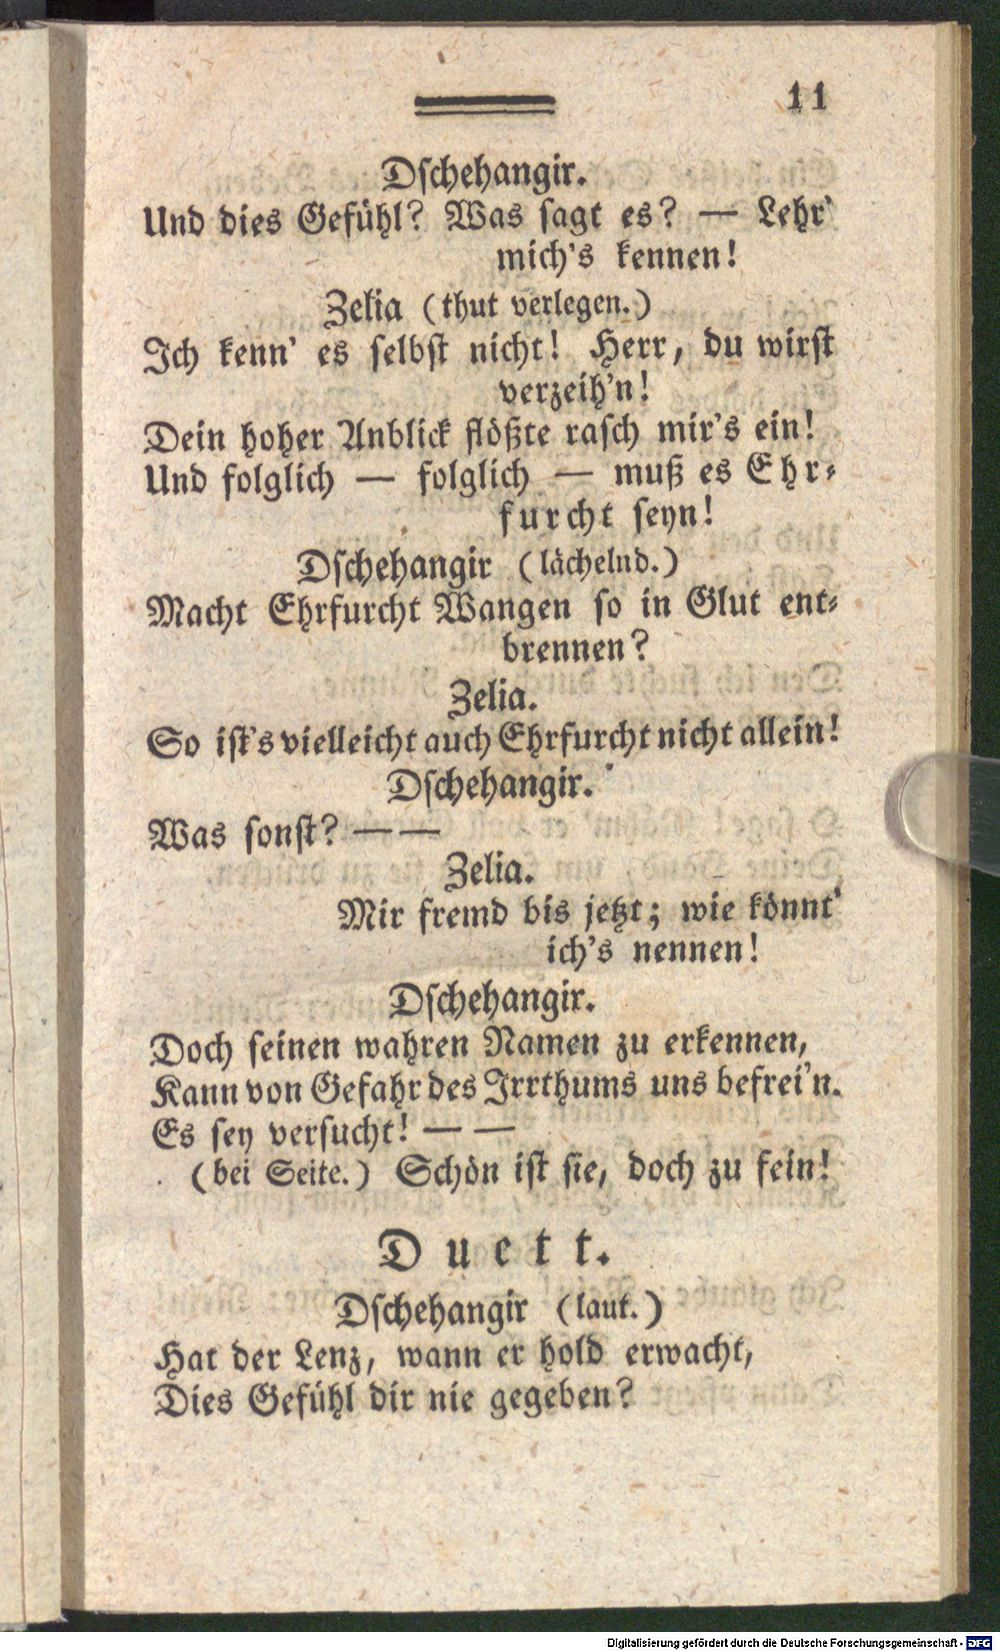 11
Dschehangir.
Und dies Gefühl? Was sagt es? — Lehr'
mich's kennen!
Zelia (thut verlegen.)
Ich kenn' es selbst nicht! Herr, du wirst
verzeih'n!
Dein hoher Anblick flößte rasch mir's ein!
Und folglich — folglich — muß es Ehr-
furcht seyn!
Dschehangir (lächelnd.)
Macht Ehrfurcht Wangen so in Glut ent-
brennen?
Zelia.
So ist's vielleicht auch Ehrfurcht nicht allein!
Dschehangir.
Was sonst? — —
Zelia.
Mir fremd bis jetzt; wie könnt'
ich's nennen!
Dschehangir.
Doch seinen wahren Namen zu erkennen,
Kann von Gefahr des Irrthums uns befrei'n.
Es sey versucht! — —
(bei Seite.) Schön ist sie, doch zu fein!
Duett.
Dschehangir (laut.)
Hat der Lenz, wann er hold erwacht,
Dies Gefühl dir nie gegeben?
Digitalisierung gefördert durch die Deutsche Forschungsgemeinschaft - DFG